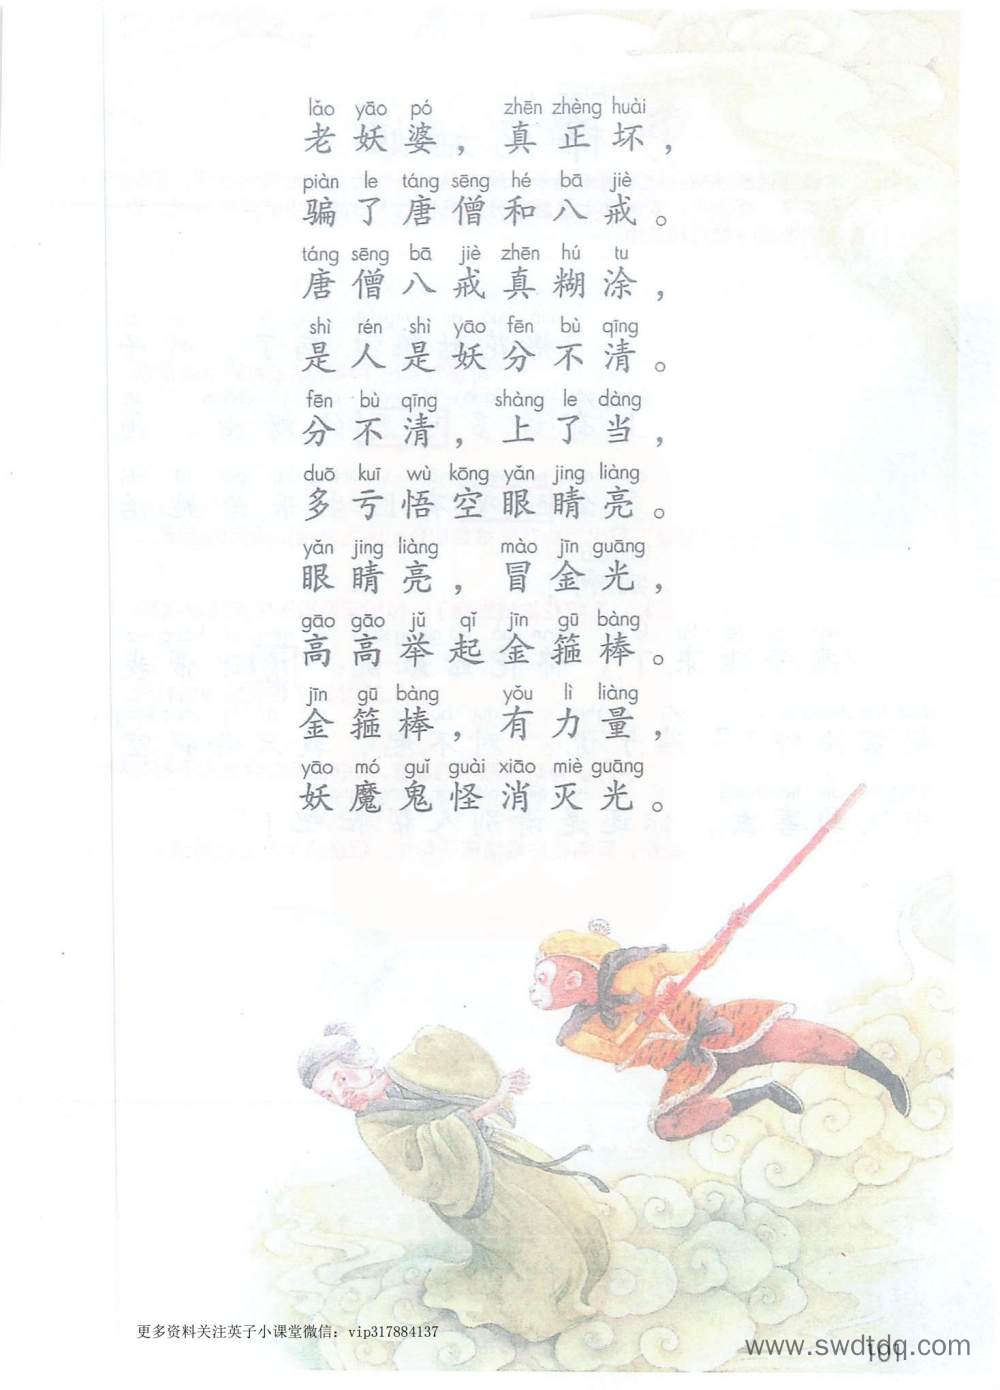 lǎo yāo pó zhēn zhèng huài
老妖婆，真正坏，
piàn le táng sēng hé bā jiè
骗了唐僧和八戒。
táng sēng bā jiè zhēn hú tu
唐僧八戒真糊涂，
shì rén shì yāo fēn bù qīng
是人是妖分不清。
fēn bù qīng shàng le dàng
分不清，上了当，
duō kuī wù kōng yǎn jing liàng
多亏悟空眼睛亮。
yǎn jing liàng mào jīn guāng
眼睛亮，冒金光，
gāo gāo jǔ qǐ jīn gū bàng
高高举起金箍棒。
jīn gū bàng yǒu lì liàng
金箍棒，有力量，
yāo mó guǐ guài xiāo miè guāng
妖魔鬼怪消灭光。
更多资料关注英子小课堂微信：vip317884137
www.swdtdq.com
101